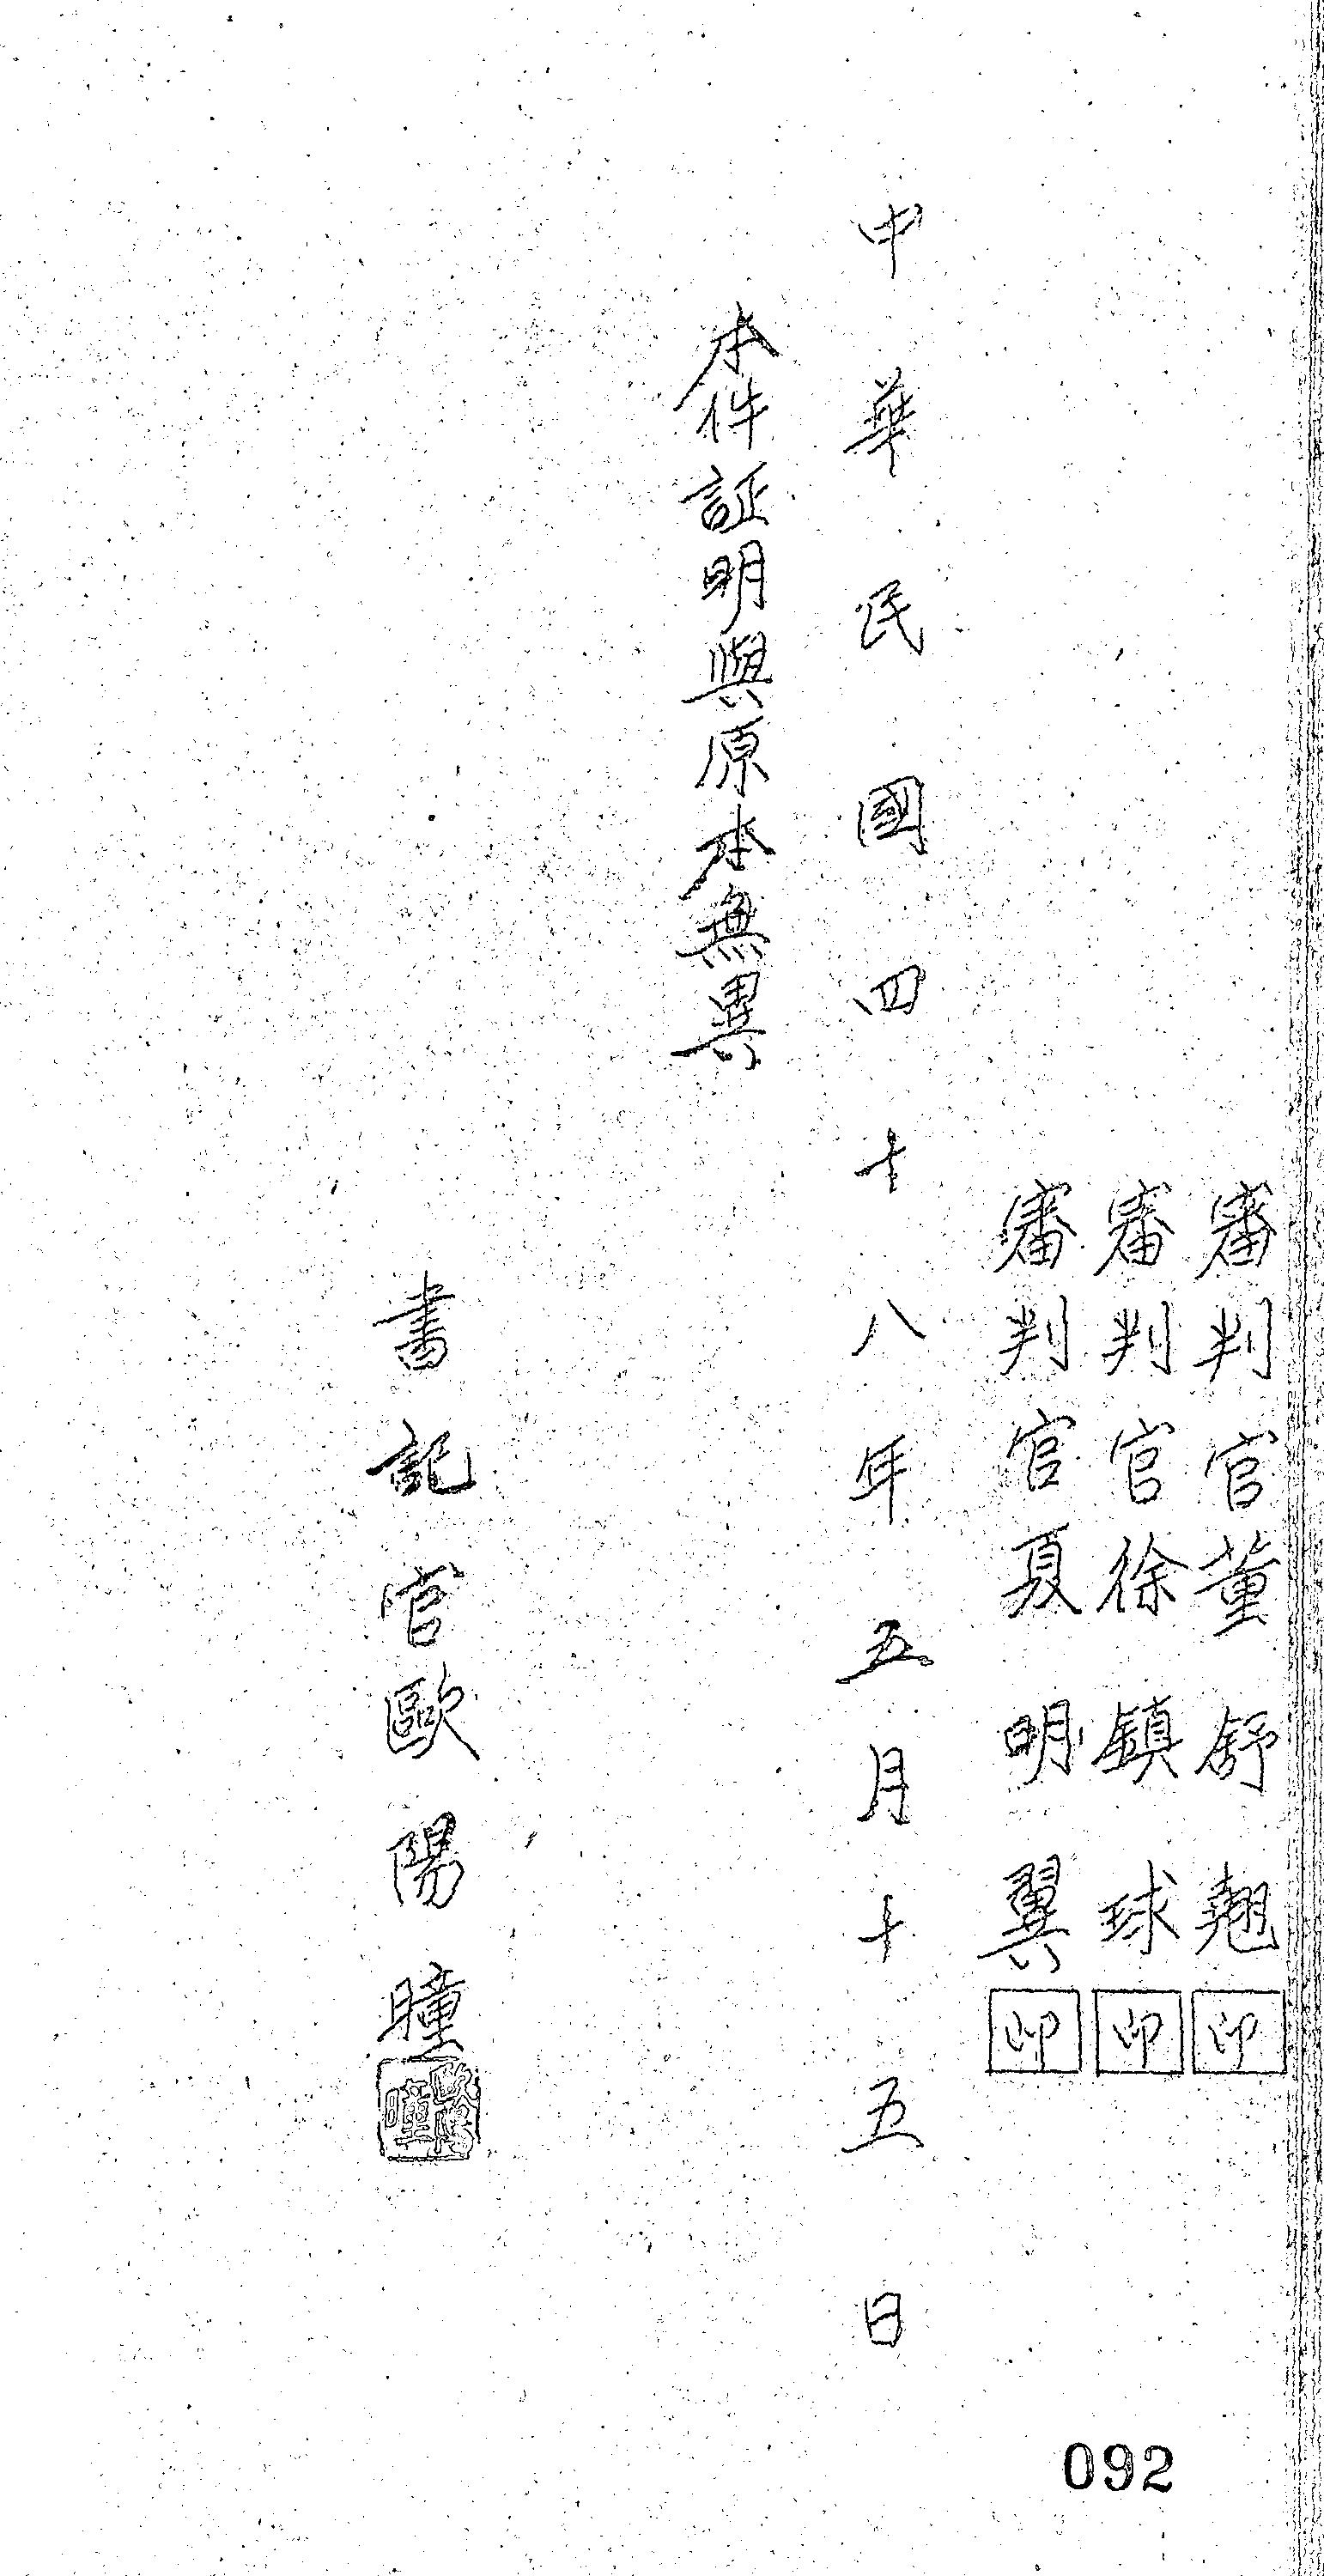 審判官董舒翹印
審判官徐鎮球印
審判官夏明翼印
中華民國四十八年五月十五日
本件証明與原本無異
書記官歐陽瞳
歐陽瞳
092